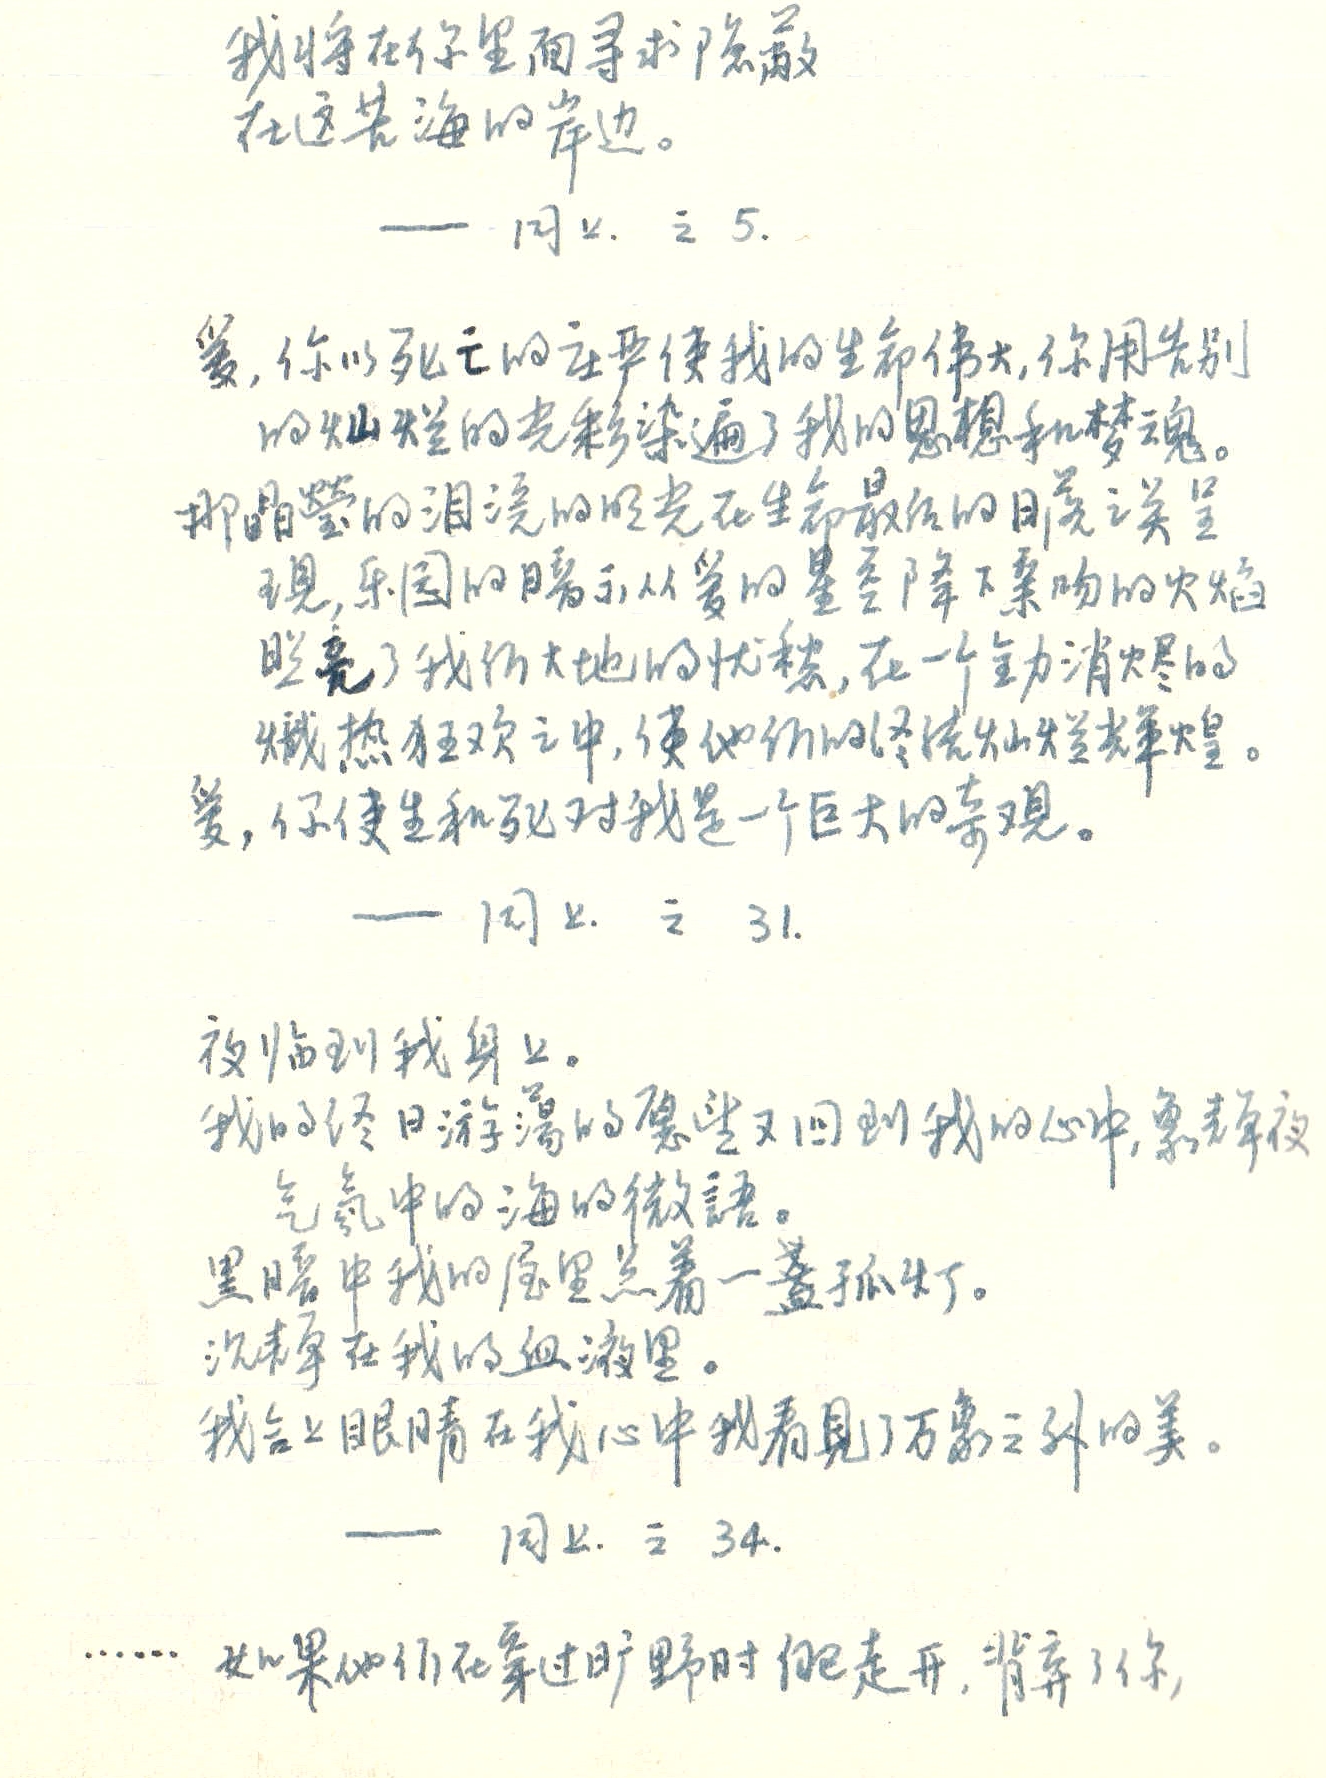 我将在你里面寻求隐蔽
在这苦海的岸边。
—— 同上. 之 5.
爱,你以死亡的庄严使我的生命伟大,你用告别
的灿烂的光彩染遍了我的思想和梦魂。
那晶莹的泪浇的明光在生命最后的日落之美呈
现,乐园的暗示从爱的星空降下来吻的火焰
照亮了我们大地的忧愁,在一个全力消烬的
炽热狂欢之中,使他们的终结灿烂辉煌。
爱,你使生和死对我是一个巨大的奇观。
—— 同上. 之 31.
夜临到我身上。
我的终日游蕩的愿望又回到我的心中,象静夜
气氛中的海的微語。
黑暗中我的屋里点着一盏孤灯。
沉静在我的血液里。
我合上眼睛在我心中我看見了万象之外的美。
—— 同上. 之 34.
…… 如果他们在穿过旷野时都走开,背弃了你,